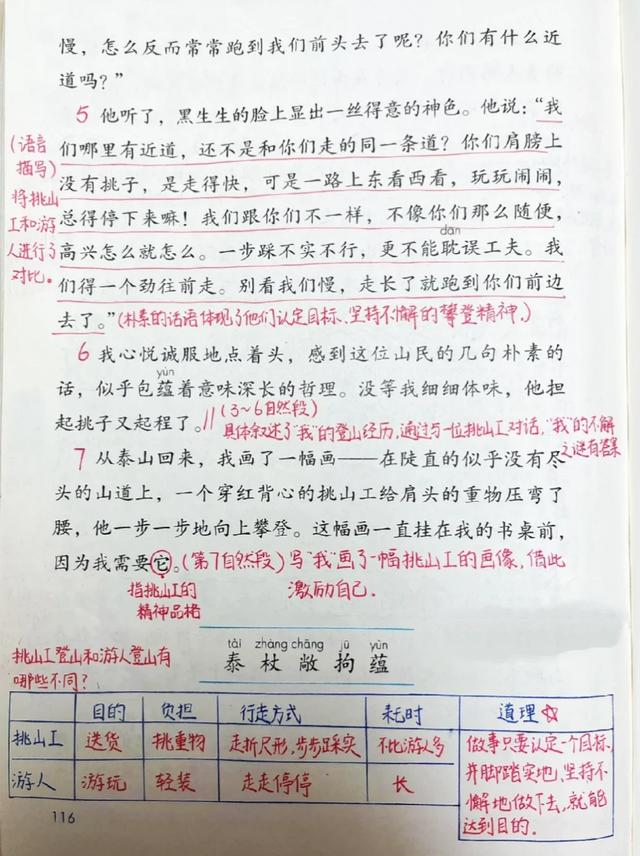 慢，怎么反而常常跑到我们前头去了呢？你们有什么近
道吗？”
5 他听了，黑生生的脸上显出一丝得意的神色。他说：“我
们哪里有近道，还不是和你们走的同一条道？你们肩膀上
没有挑子，是走得快，可是一路上东看西看，玩玩闹闹，
总得停下来嘛！我们跟你们不一样，不像你们那么随便，
dān
高兴怎么就怎么。一步踩不实不行，更不能耽误工夫。我
们得一个劲往前走。别看我们慢，走长了就跑到你们前边
去了。”(朴素的话语体现了他们认定目标、坚持不懈的攀登精神.)
(语言
描写)
将挑山
工和游
人进行了
对比。
6 我心悦诚服地点着头，感到这位山民的几句朴素的
yùn
话，似乎包蕴着意味深长的哲理。没等我细细体味，他担
起挑子又起程了。//(3~6自然段)
具体叙述了“我”的登山经历，通过与一位挑山工对话，“我”的不解
之谜有答案
7 从泰山回来，我画了一幅画——在陡直的似乎没有尽
头的山道上，一个穿红背心的挑山工给肩头的重物压弯了
腰，他一步一步地向上攀登。这幅画一直挂在我的书桌前，
因为我需要它。(第7自然段)写“我”画了一幅挑山工的画像，借此
激励自己.
指挑山工的
精神品格
tài zhàng chǎng jū yùn
泰 杖 敞 拘 蕴
挑山工登山和游人登山有
哪些不同？
目的 负担 行走方式 耗时 道理☆
挑山工 送货 挑重物 走折尺形，步步踩实 不比游人多
游人 游玩 轻装 走走停停 长
做事只要认定一个目标，
并脚踏实地，坚持不
懈地做下去，就能
达到目的.
116